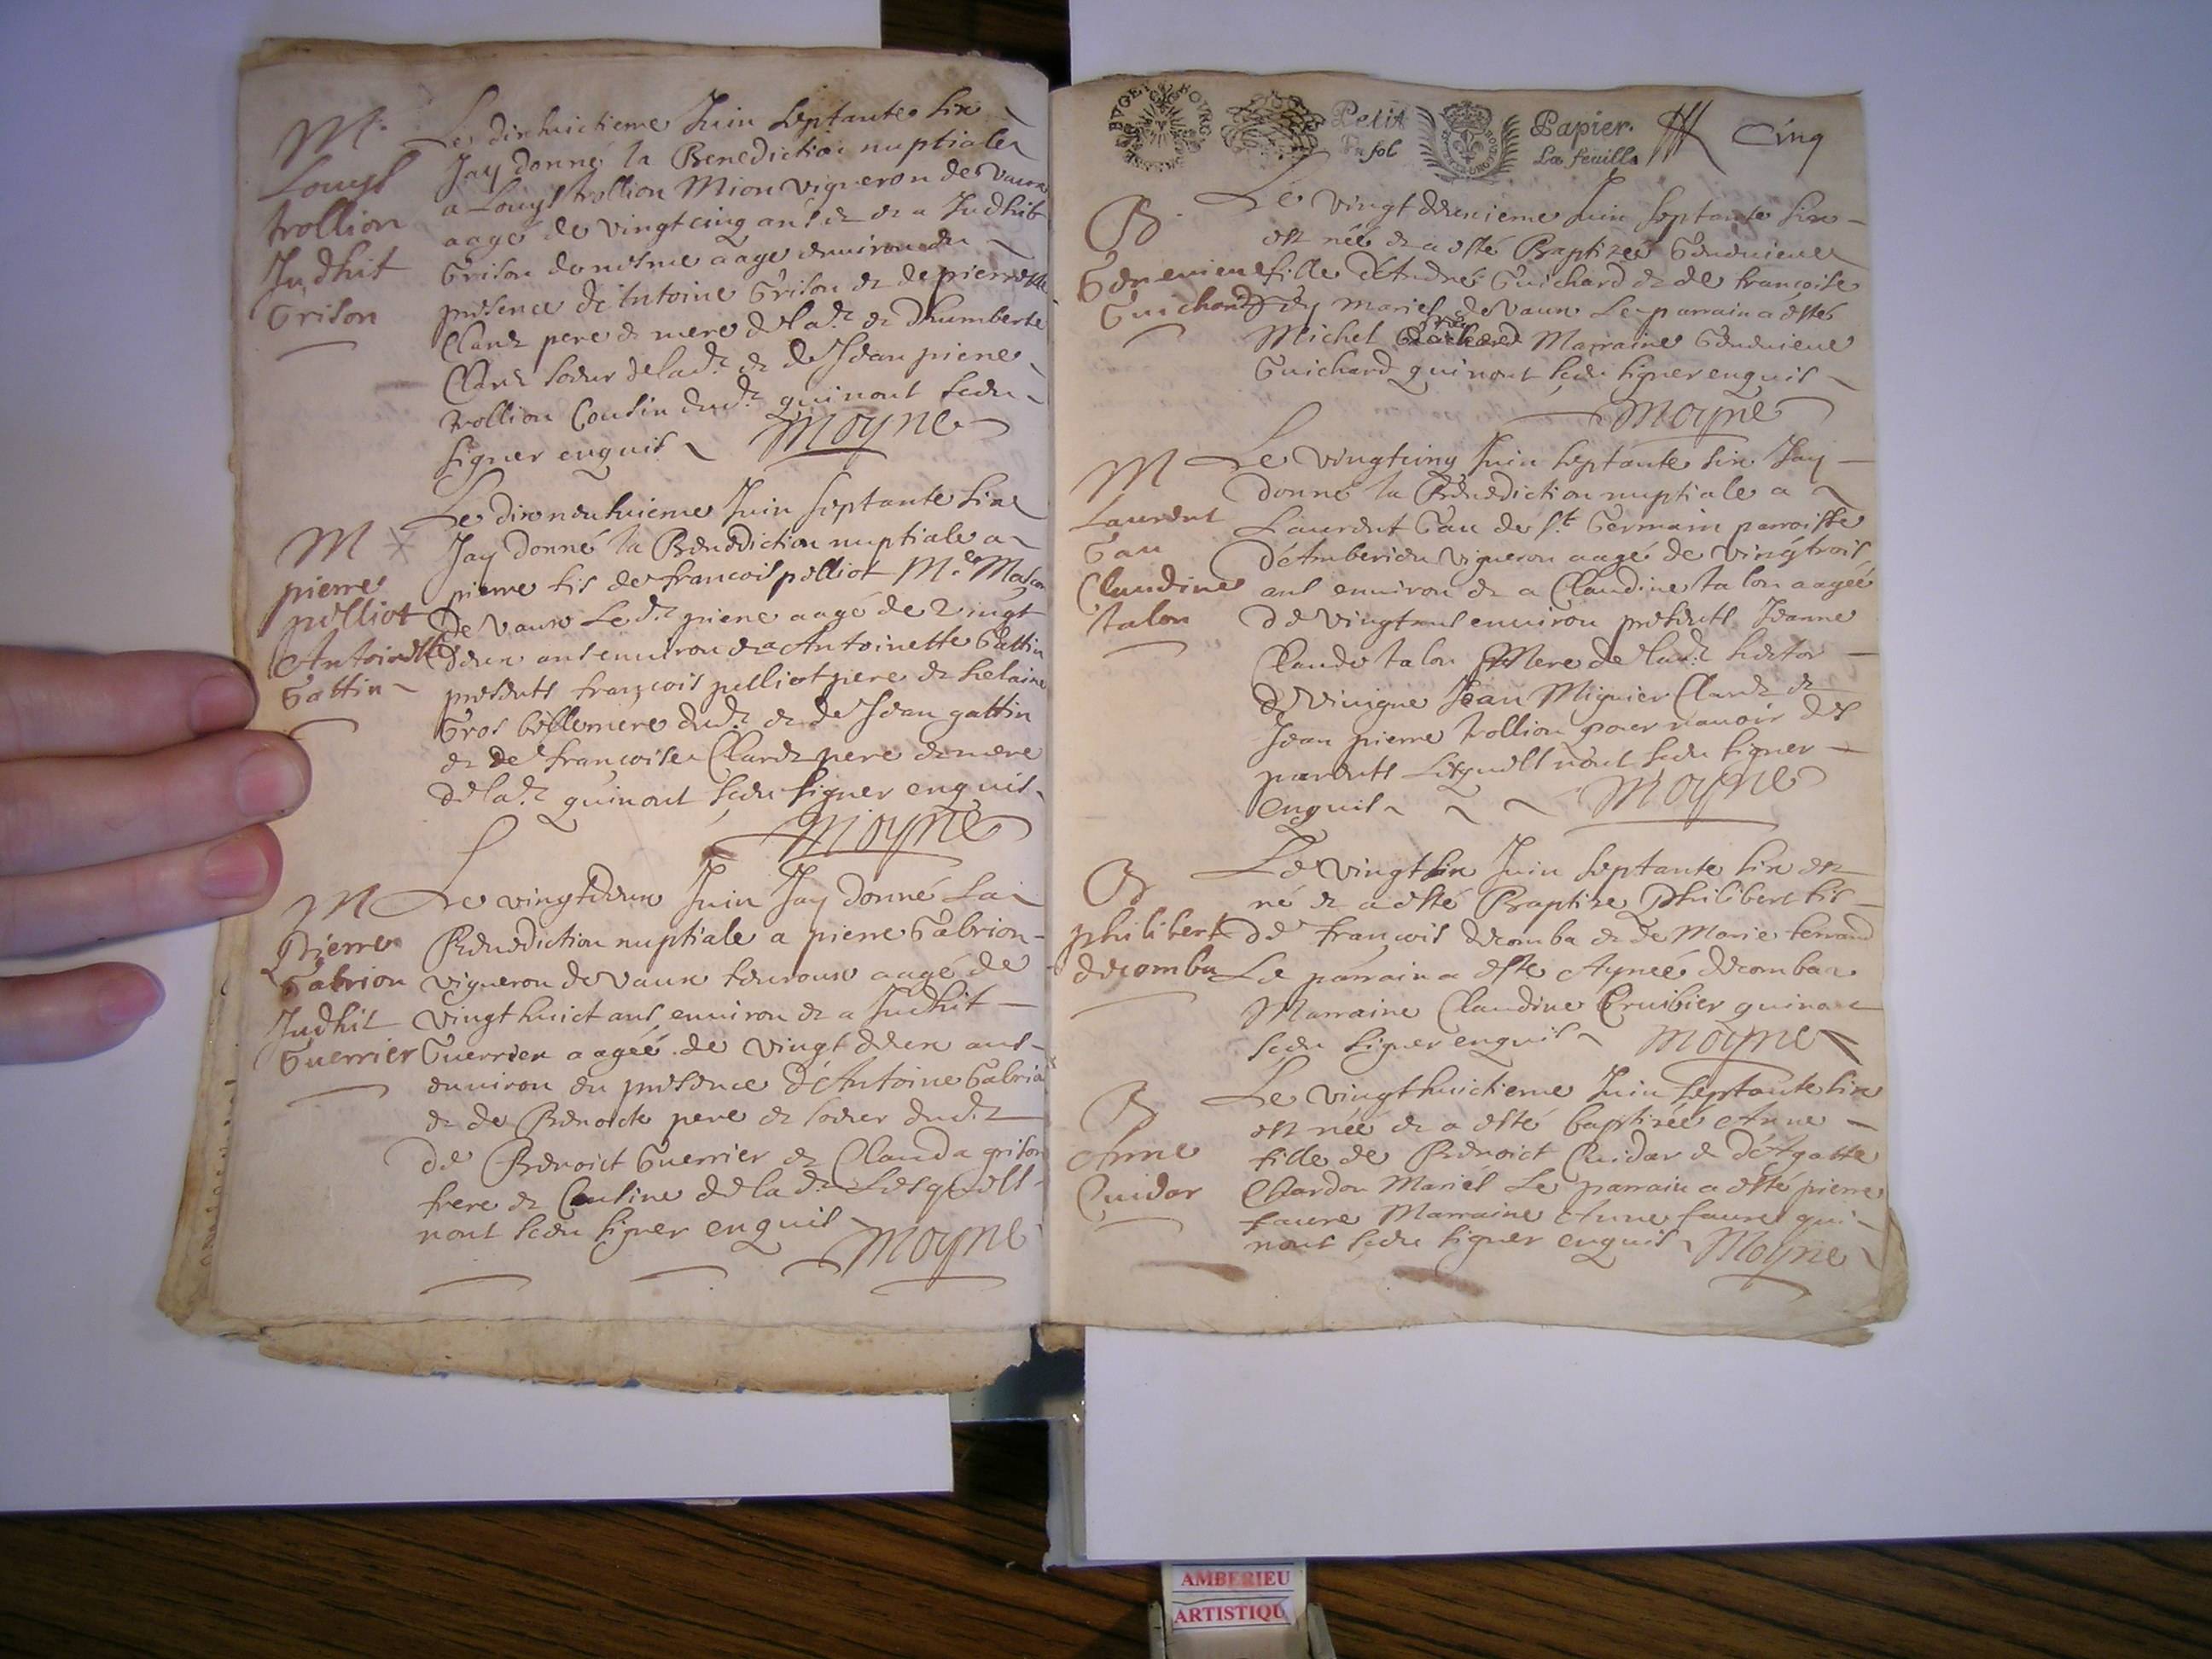 M.
Louys
trollion
Judhit
Grison
Le dixhuictieme Juin septante six
Jay donné la Benediction nuptiale
a Louys trollion Mion vigneron de Vaux
aagé de vingtcinq ans et a Judhit
Grison aage environ de
presence de Antoine Grison et de pierrette
Clard pere et mere de lad.t et d'humberte
Clard soeur de lad.t et de Jean pierre
trollion Cousin dud.t qui nont sceu
signer enquis Moyne
M
pierre
pelliot
Antoinette
Gattin
Le dixneufuieme Juin septante six
Jay donné la Benediction nuptiale a
pierre fis de francois pelliot M.e Masson
de Vaux Led.t pierre aagé de vingt
deux ans environ et a Antoinette Gattin
presents françois pelliot pere et helaine
Gros bellemere dud.t et de Jean gattin
et de françoise Clard pere et mere
de lad.t qui nont sceu signer enquis
Moyne
M
Pierre
Gabrion
Judhit
Guerrier
Le vingtdeux Juin Jay donné la
Benediction nuptiale a pierre Gabrion
vigneron de Vaux fevroux aagé de
vingt huict ans environ et a Judhit
Guerrier aagéé de vingt deux ans
environ en presence d'Antoine Gabrion
et de Benoicte pere et soeur dud.t
de Benoict Guerrier et Clauda grison
frere et Cousine de lad.t Lesquells
nont sceu signer enquis Moyne
BVGEY BOVRG
Petit
In fol
Papier.
La feuille
Cinq
B.
Genevieve
Guichard
Le vingt deuxieme Juin septante six
est néé et a esté Baptizéé Genevieve
fille d'André Guichard et de françoise
Fey mariés de Vaux Le parrain a esté
Michel Marraine Genevieve
Guichard qui nont sceu signer enquis
Moyne
M
Laurent
Gau
Claudine
talon
Le vingtcinq Juin septante six Jay
donné la Benediction nuptiale a
Laurent Gau de S.t Germain parroisse
d'Amberieu vigneron aagé de vingtrois
ans environ et a Claudine talon aagéé
de vingt ans environ presents Jeanne
Claude talon Mere de lad.t hector
de vinigne Jean Mignier Clard et
Jean pierre trollion pour navoir des
parents Lesquells nont sceu signer
enquis Moyne
B
philibert
decomba
Le vingtsix Juin septante six est
né et a esté Baptize Philibert fis
de francois decomba et de Marie ferrand
Le parrain a esté Ayneé decomba
Marraine Claudine Cruibier qui nont
sceu signer enquis Moyne
B
Anne
Cuidar
Le vingthuictieme Juin septante six
est néé et a esté baptizéé Anne
fille de Benoict Cuidar et d'Agatte
Chardon Mariés Le parrain a esté pierre
faure Marraine Anne faure qui
nont sceu signer enquis Moyne
AMBERIEU
ARTISTIQU